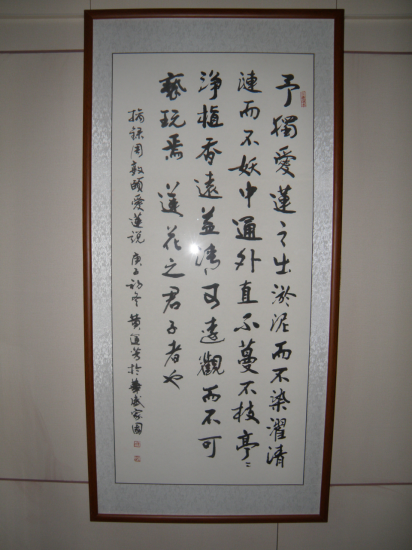 予獨愛蓮之出淤泥而不染濯清
漣而不妖中通外直不蔓不枝亭〻
淨植香遠益清可遠觀而不可
褻玩焉 蓮花之君子者也
摘錄周敦頤愛蓮說 庚子初冬 黄 於華盛家園